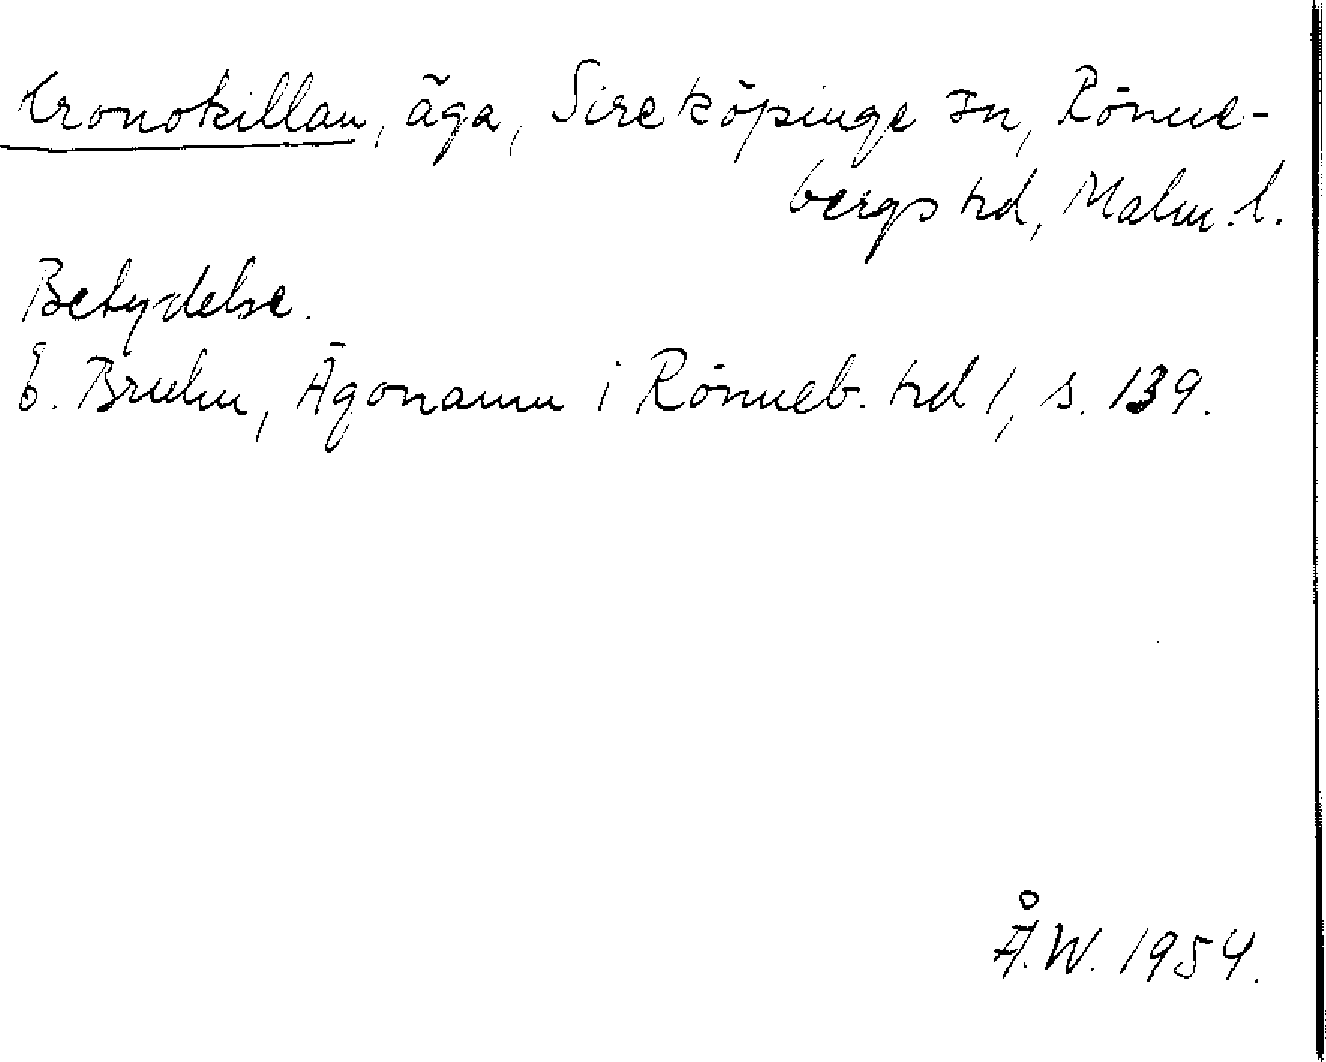 Cronokillan, äga, Sireköpinge sn, Rönne-
bergs hd, Malm. l.
Betydelse.
E. Bruhn, Ägonamn i Rönneb. hd 1, s. 139.
Å.W. 1954.